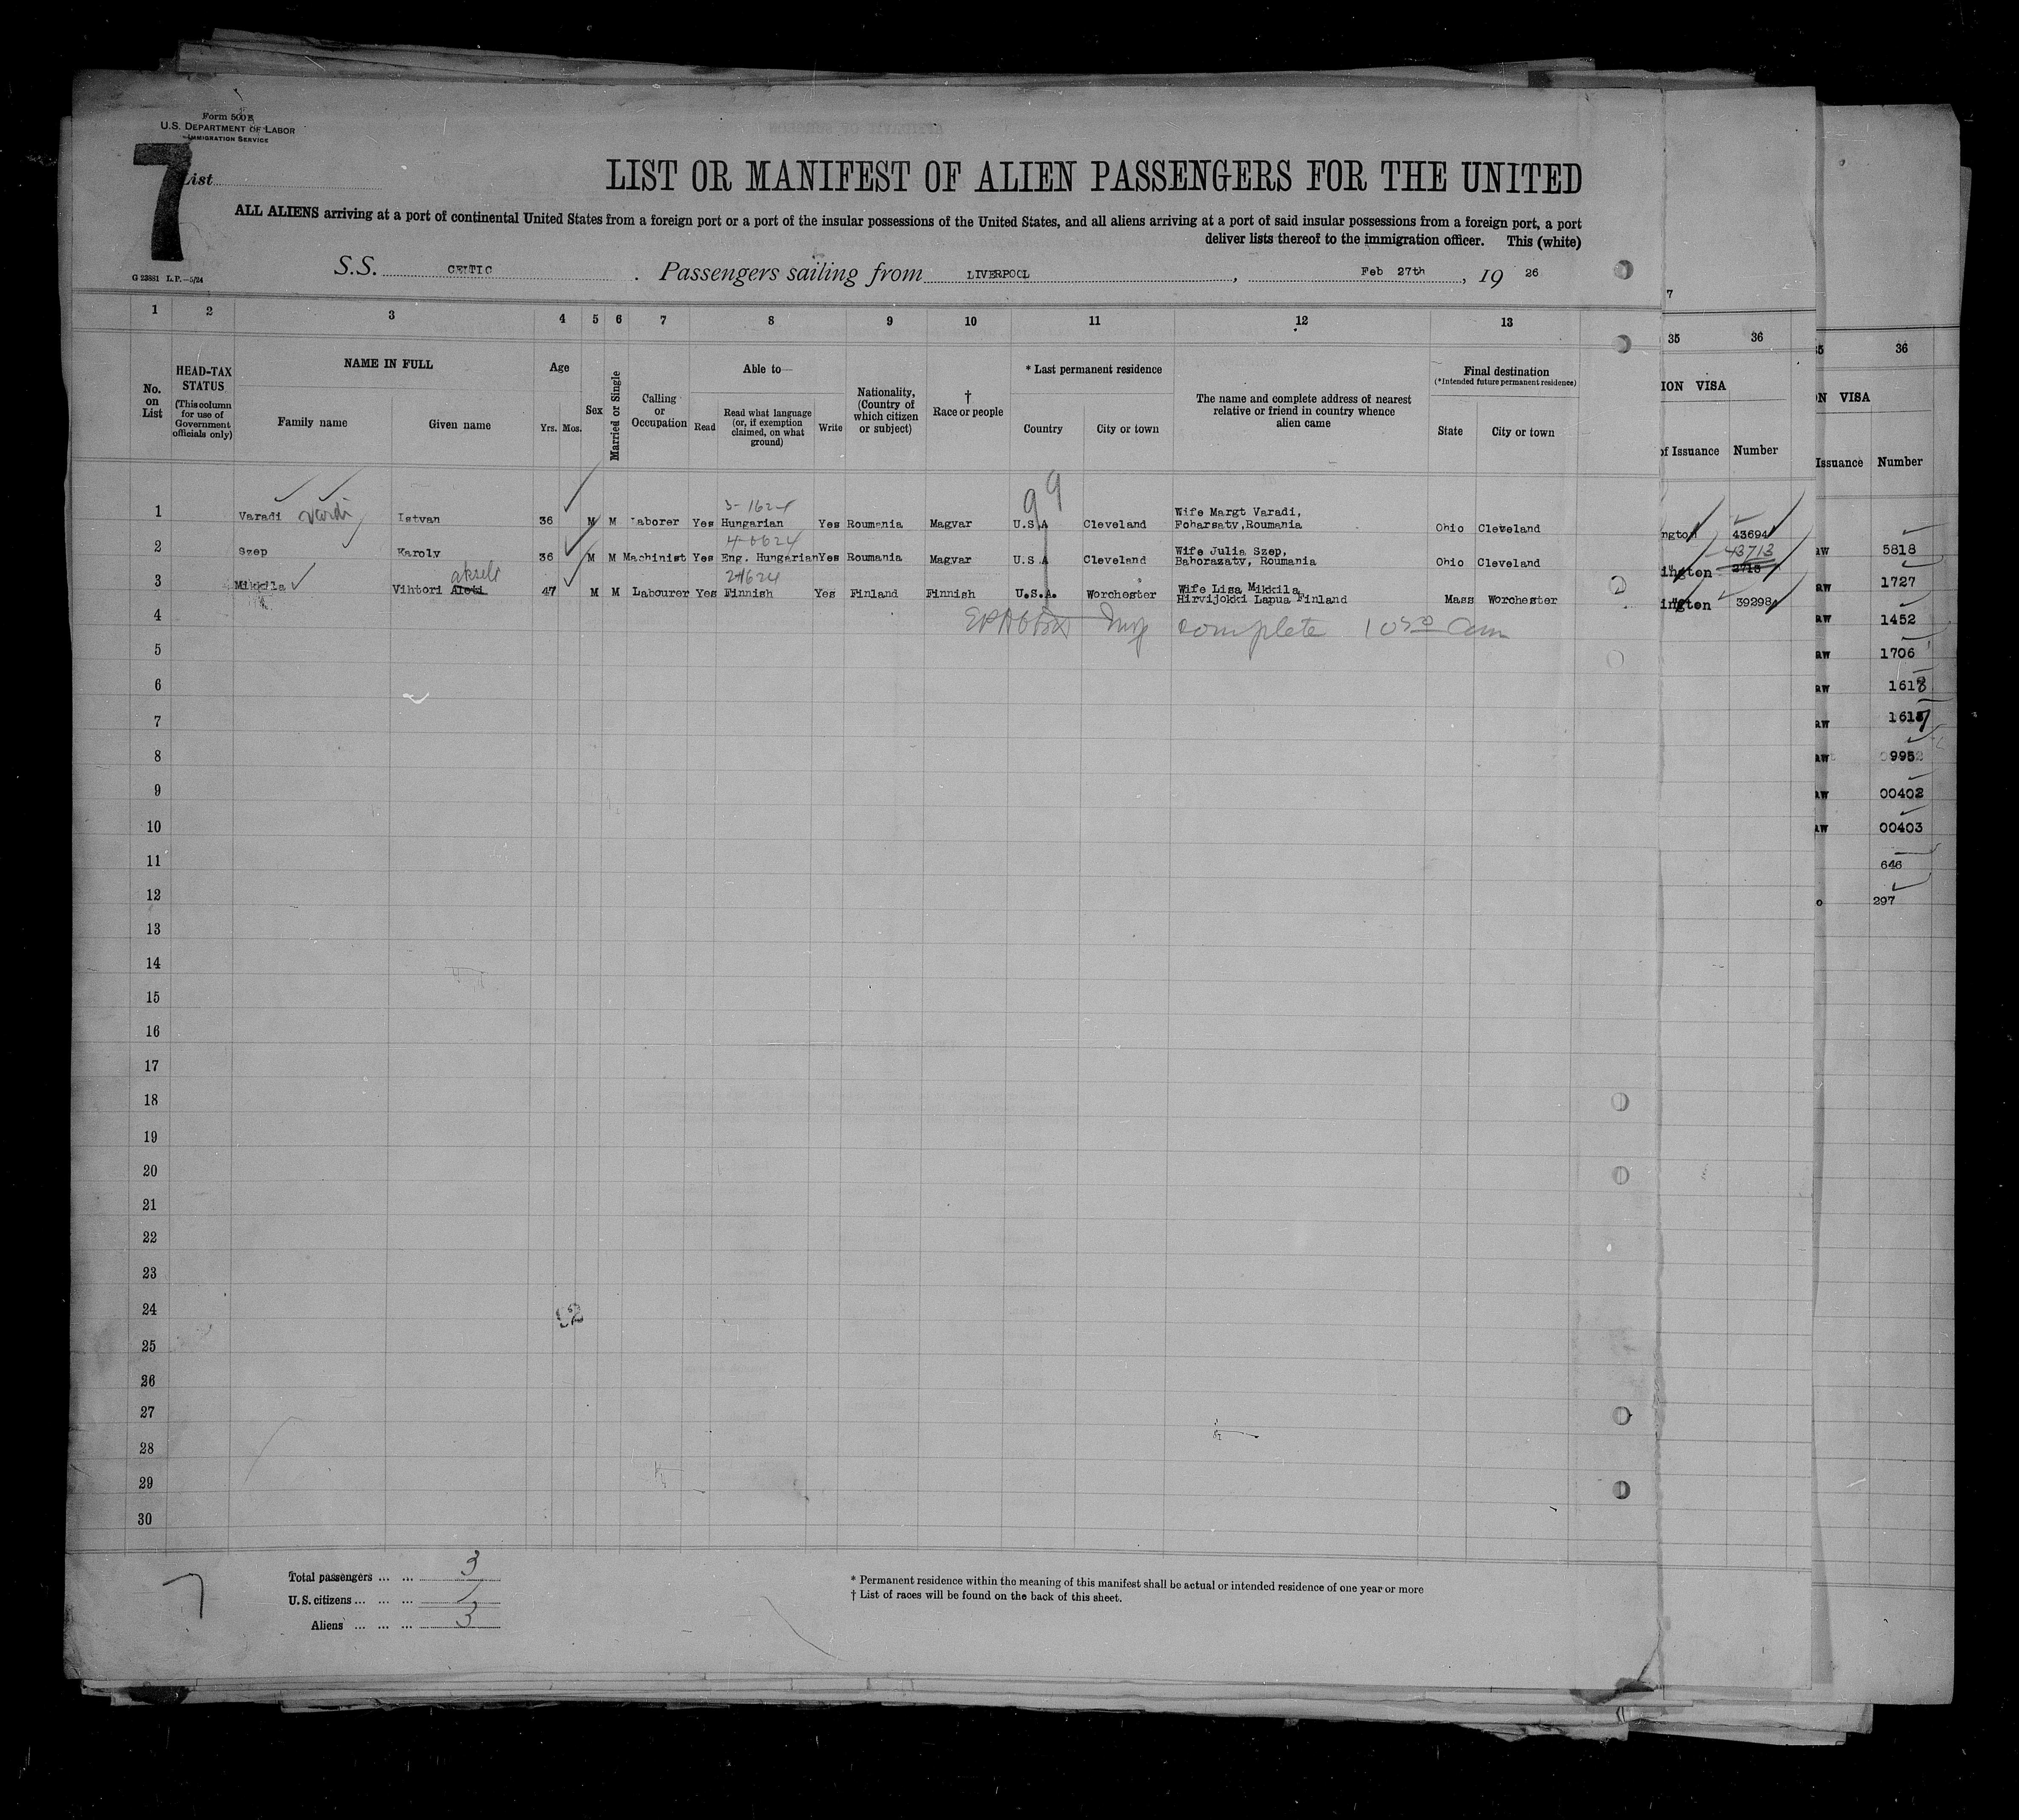 Form 500 B
U.S. DEPARTMENT OF LABOR
IMMIGRATION SERVICE
7
List
LIST OR MANIFEST OF ALIEN PASSENGERS FOR THE UNITED
ALL ALIENS arriving at a port of continental United States from a foreign port or a port of the insular possessions of the United States, and all aliens arriving at a port of said insular possessions from a foreign port, a port
deliver lists thereof to the immigration officer. This (white)
G 23881 L.P.—5/24
S.S. CELTIC . Passengers sailing from LIVERPOOL, Feb 27th, 19 26
7
1 2 3 4 5 6 7 8 9 10 11 12 13 35 36 36
No. on List
HEAD-TAX STATUS (This column for use of Government officials only)
NAME IN FULL
Family name
Given name
Age
Yrs. Mos.
Sex
Married or Single
Calling or Occupation
Able to—
Read
Read what language (or, if exemption claimed, on what ground)
Write
Nationality, (Country of which citizen or subject)
† Race or people
* Last permanent residence
Country
City or town
The name and complete address of nearest relative or friend in country whence alien came
Final destination
(*Intended future permanent residence)
State
City or town
ION VISA
of Issuance Number
N VISA
Issuance Number
99
3-1624
1 Varadi Vardi Istvan 36 M M Laborer Yes Hungarian Yes Roumania Magyar U.S.A Cleveland Wife Margt Varadi, Foharsaty,Roumania Ohio Cleveland ngton 43694
2 Szep Karoly 36 M M Machinist Yes Eng. Hungarian Yes Roumania Magyar U.S.A Cleveland Wife Julia Szep, Bahorazaty, Roumania Ohio Cleveland ington 2713 43713
akseli
24624
3 Mikkila Vihtori Aleti 47 M M Labourer Yes Finnish Yes Finland Finnish U.S.A. Worchester Wife Lisa Mikkila Hirvijokki Lapua Finland Mass Worchester ington 39298
complete 10 30 am
4
5
6
7
8
9
10
11
12
13
14
15
16
17
18
19
20
21
22
23
24
25
26
27
28
29
30
aw 5818
aw 1727
aw 1452
aw 1706
aw 1618
aw 1617
aw 9952
aw 00402
aw 00403
646
o 297
Total passengers ... ... 3
U.S. citizens ... ... ...
Aliens ... ... ... 3
7
* Permanent residence within the meaning of this manifest shall be actual or intended residence of one year or more
† List of races will be found on the back of this sheet.